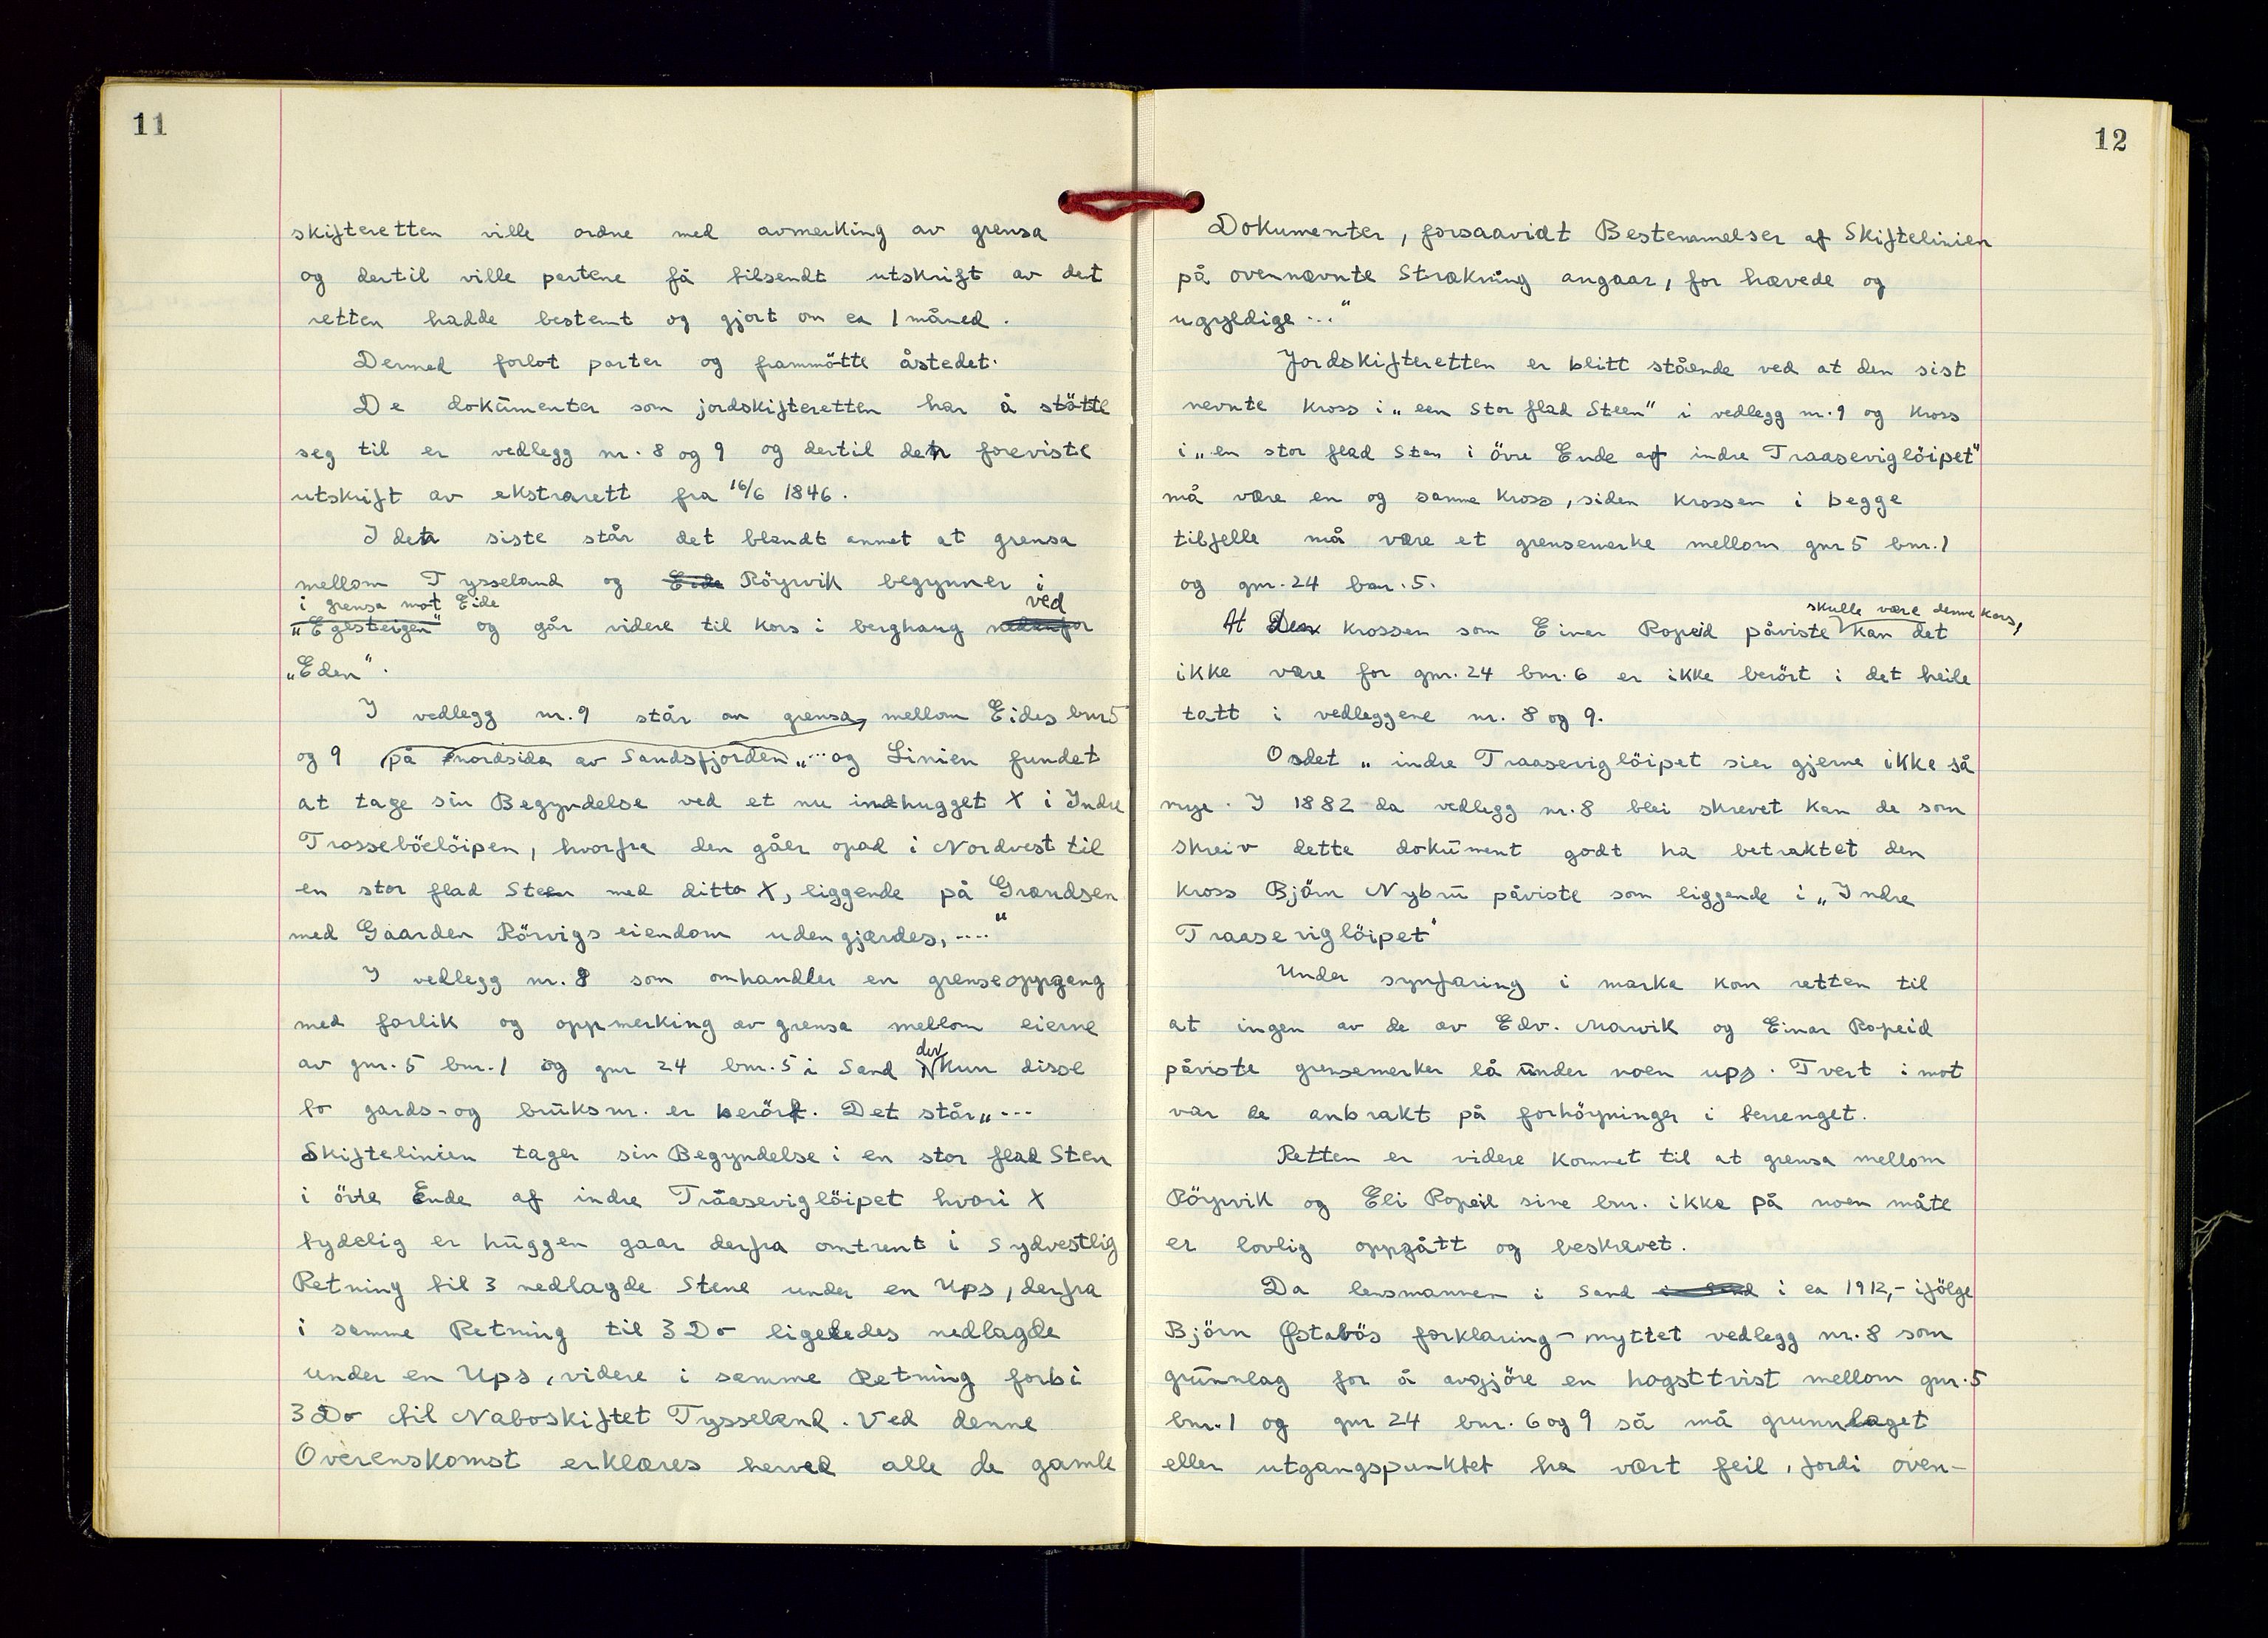 11
skifteretten ville ordne med avmerking av grensa
og dertil ville partene få tilsendt utskrift av det
retten hadde bestemt og gjort om ca 1 måned.
Dermed forlot parter og frammötte åstedet.
De dokumenter som jordskifteretten har å stötte
seg til er vedlegg nr. 8 og 9 og dertil den foreviste
utskrift av ekstrarett fra 16/6 1846.
I den siste står det blandt annet at grensa
mellom Tysseland og Eide Röyrvik begynner i
i grensa mot Eide ved
„Egesteigen" og går videre til kors i berghaug nedanfor
„Eden".
I vedlegg nr. 9 står om grensa, mellom Eides bnr5
og 9 på nordsida av Sandsfjorden „... og Linien fundet
at tage sin Begyndelse ved et nu indhugget X i Indre
Trosseböelöipen, hvorfra den gåer opad i Nordvest til
en stor flad Steen med ditto X, liggende på Grændsen
med Gaarden Rörvigs eiendom uden gjærdes, ...."
I vedlegg nr. 8 som omhandler en grenseoppgang
med forlik og oppmerking av grensa mellom eierne
av gnr. 5 bnr. 1 og gnr 24 bnr. 5 i Sand der kun disse
to gards- og bruksnr. er berört. Det står „...
Skiftelinien tager sin Begyndelse i en stor flad Sten
i övre Ende af indre Traaseviglöipet hvori X
tydelig er huggen gaar derfra omtrent i Sydvestlig
Retning til 3 nedlagde Stene under en Ups, derfra
i samme Retning til 3 Do ligeledes nedlagde
under en Ups, videre i samme Retning forbi
3 Do til Naboskiftet Tysseland. Ved denne
Overenskomst erklæres herved alle de gamle
12
Dokumenter, forsaavidt Bestemmelser af Skiftelinien
på ovennævnte Strækning angaar, for hævede og
ugyldige ..."
Jordskifteretten er blitt stående ved at den sist
nevnte kross i „een stor flad Steen" i vedlegg nr. 9 og kross
i „en stor flad Sten i övre Ende af indre Traaseviglöipet"
må være en og samme kross, siden krossen i begge
tilfelle må være et grensemerke mellom gnr 5 bnr. 1
og gnr. 24 bnr. 5.
skulle være denne kors,
At Den krossen som Einar Ropeid påviste kan det
ikke være for gnr. 24 bnr. 6 er ikke berört i det heile
tatt i vedleggene nr. 8 og 9.
Ordet „indre Traaseviglöipet sier gjerne ikke så
mye. I 1882 da vedlegg nr. 8 blei skrevet kan de som
skreiv dette dokument godt ha betraktet den
kross Björn Nybru påviste som liggende i „Indre
Traaseviglöipet"
Under synfaring i marka kom retten til
at ingen av de av Edv. Marvik og Einar Ropeid
påviste grensemerker lå under noen ups. Tvert imot
var de anbrakt på forhöyninger i terrenget.
Retten er videre kommet til at grensa mellom
Röyrvik og Eli Ropeid sine bnr. ikke på noen måte
er lovlig oppgått og beskrevet.
Da lensmannen i Sand i Sand i ca 1912,- ifölge
Björn Östabös forklaring - nyttet vedlegg nr. 8 som
grunnlag for å avgjöre en hogsttvist mellom gnr. 5
bnr. 1 og gnr 24 bnr. 6 og 9 så må grunnlaget
eller utgangspunktet ha vært feil, fordi oven-